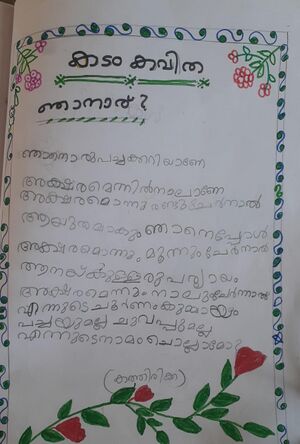 കടം കവിത
ഞാനാര് ?
ഞാനൊരുപച്ചക്കറിയാണേ
അക്ഷരമെന്നിൽനാലാണേ
അക്ഷരമൊന്നുരണ്ടുംചേർന്നാൽ
ആയുതമാകുംഞാനെപ്പോൾ
അക്ഷരമൊന്നും മൂന്നുംചേർന്നാൽ
ആനയ്ക്കുള്ളരുപര്യായം
അക്ഷരമെന്നും നാലുംചേർന്നാൽ
എന്നുടെചൂർണംകുമ്മായം
പച്ചയുമല്ല ചുവപ്പുമല്ല
എന്നുടെനാമം ചൊല്ലാമോ?
(കത്തിരിക്ക)